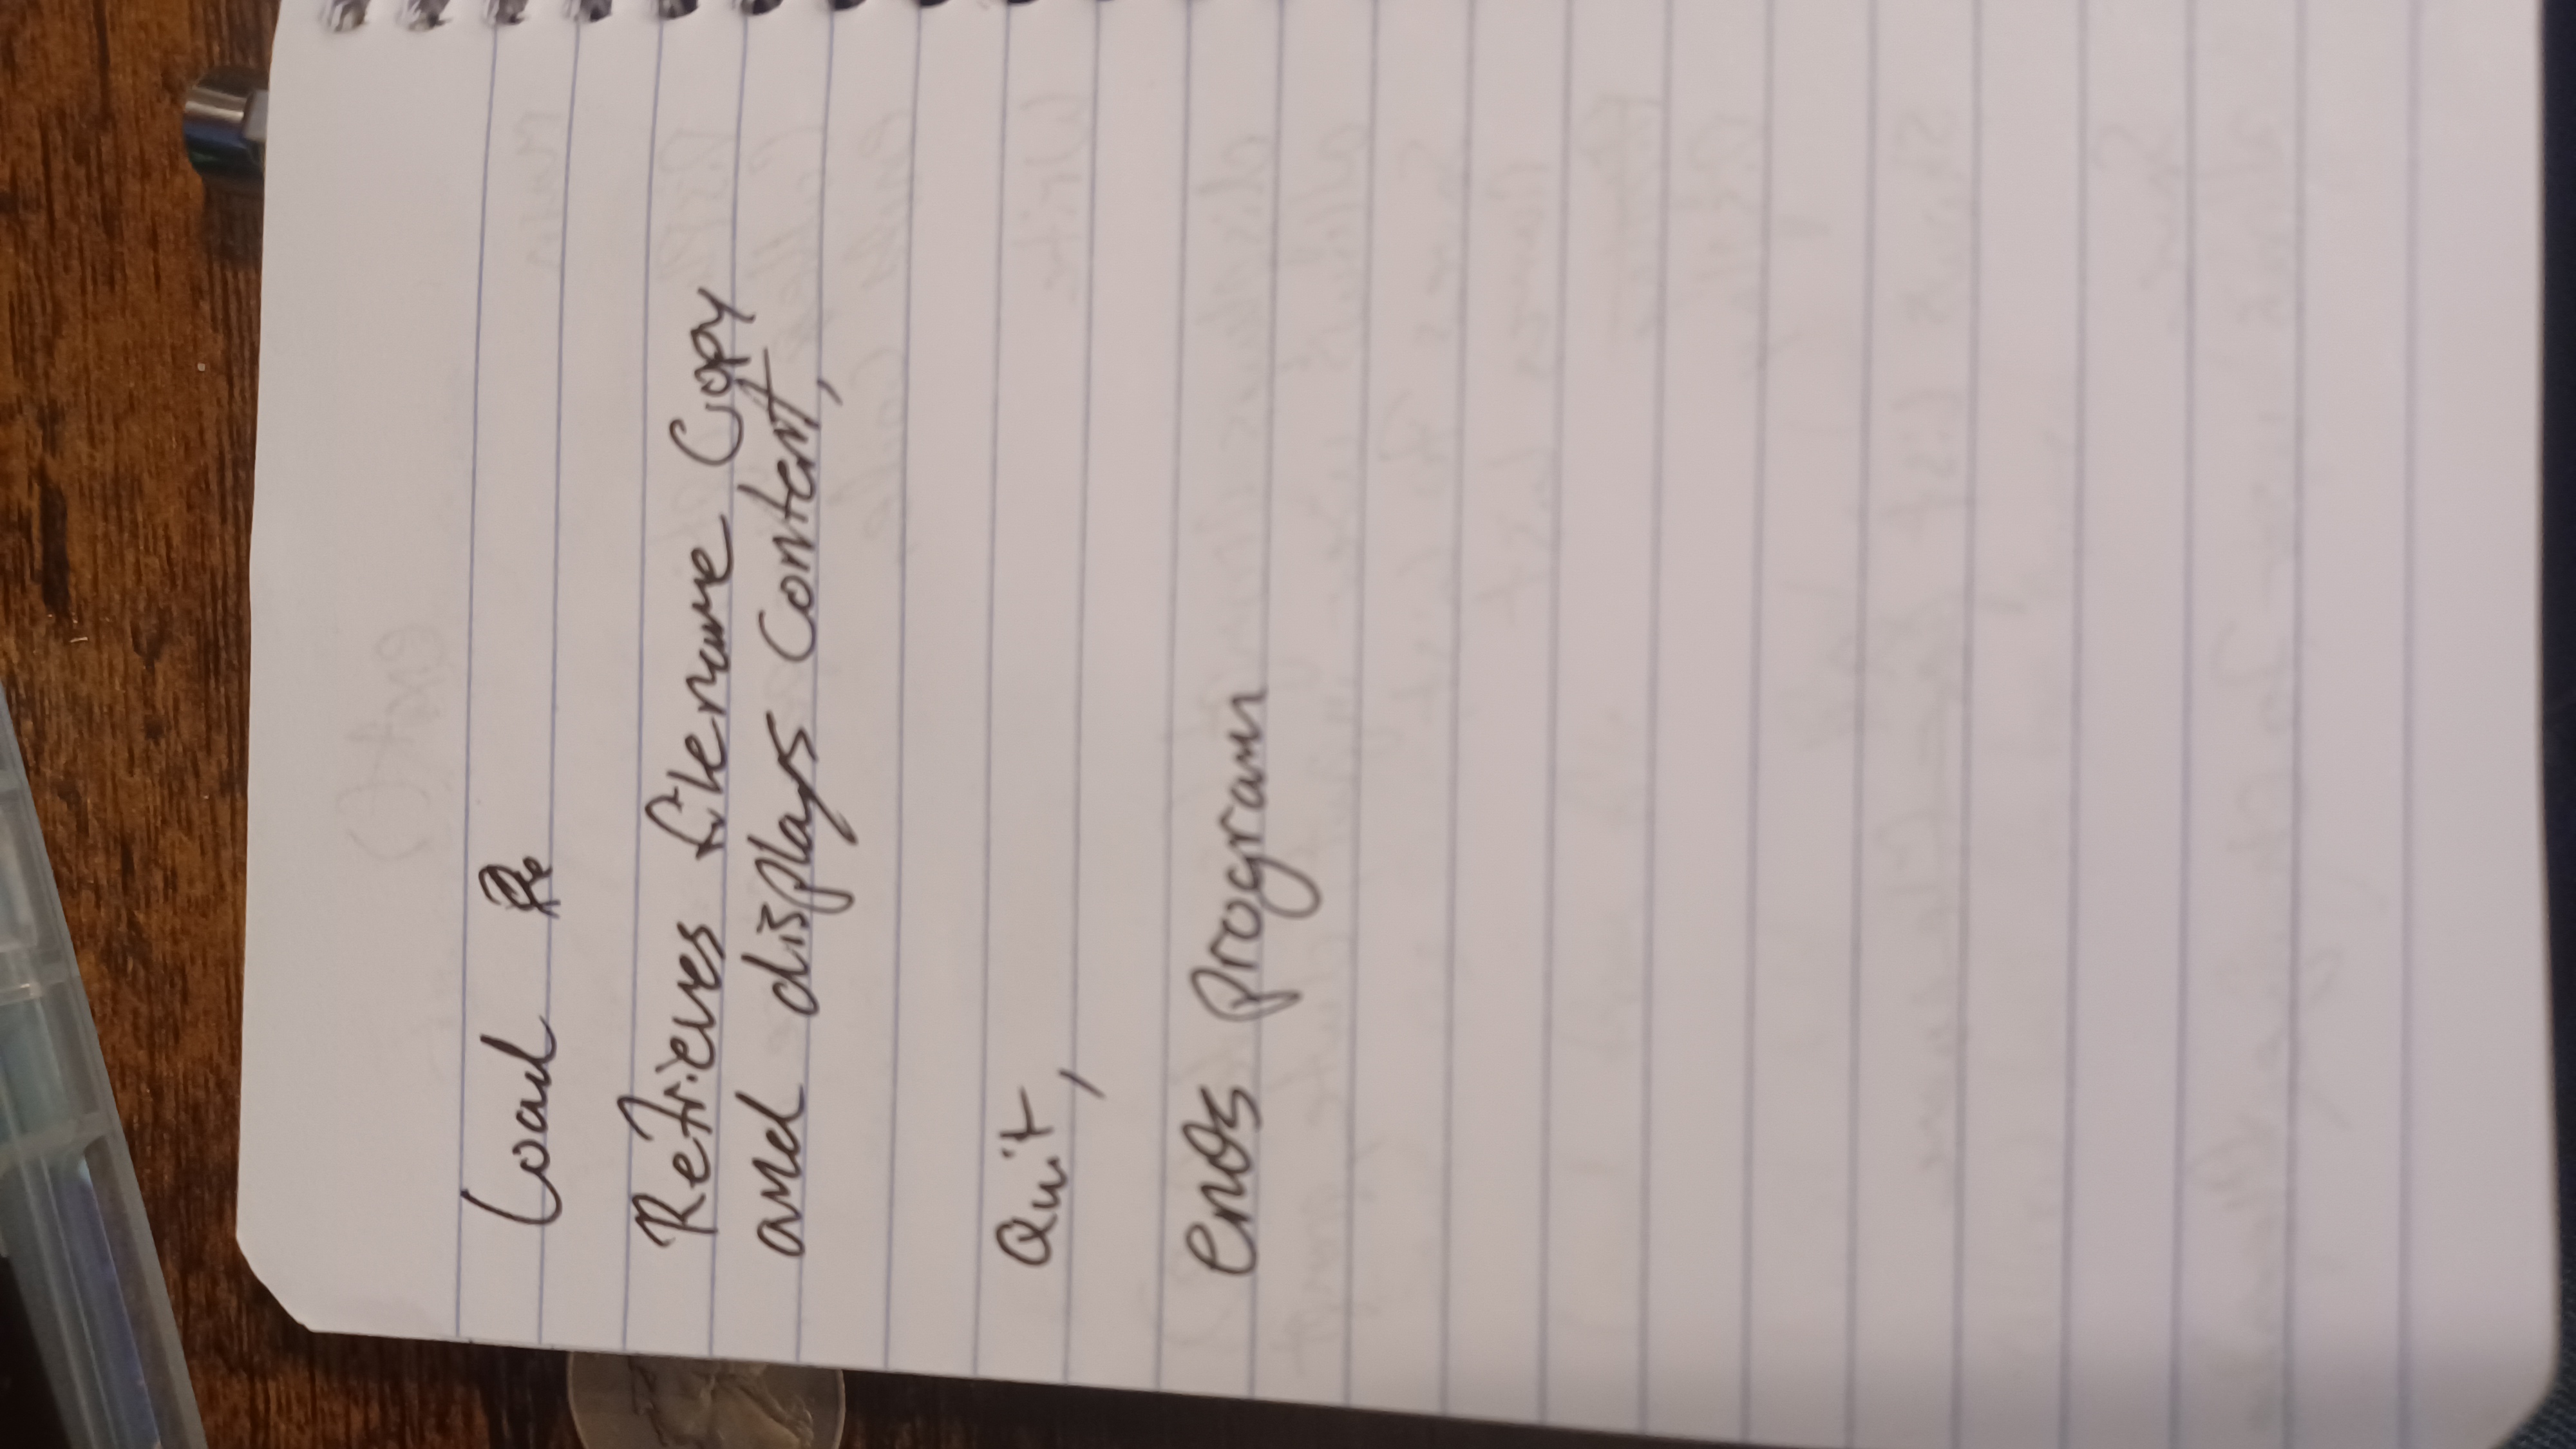 Load Re
Retrieves filename Copy
and displays content,
Quit,
ends program